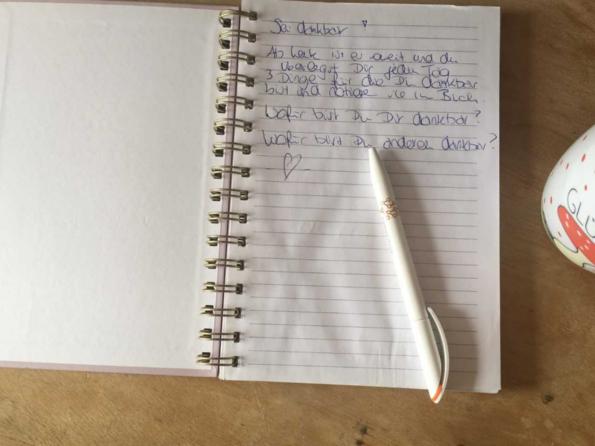 Sei dankbar
Ab heute ist es soweit und du
überlegst Dir jeden Tag
3 Dinge für die Du dankbar
bist und notierst sie im Buch.
Wofür bist Du Dir dankbar?
Wofür bist Du anderen dankbar?
GLÜ